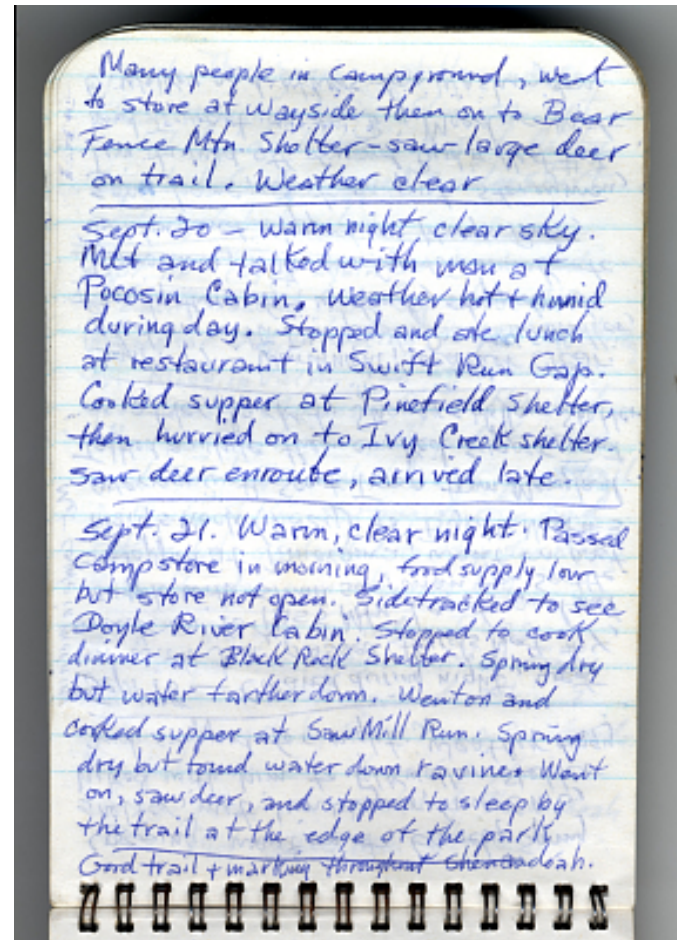 Many people in campground, went
to store at Wayside then on to Bear
Fence Mtn. Shelter - saw large deer
on trail. Weather clear
Sept. 20 - Warm night clear sky.
Met and talked with man at
Pocosin Cabin. Weather hot + humid
during day. Stopped and ate lunch
at restaurant in Swift Run Gap.
Cooked supper at Pinefield Shelter,
then hurried on to Ivy Creek shelter.
saw deer enroute, arrived late.
Sept. 21. Warm, clear night. Passed
Campstore in morning, food supply low
but store not open. Sidetracked to see
Doyle River Cabin. Stopped to cook
dinner at Black Rock Shelter. Spring dry
but water farther down. Went on and
cooked supper at Saw Mill Run. Spring
dry but found water down ravine. Went
on, saw deer, and stopped to sleep by
the trail at the edge of the park
Good trail + marking throughout Shenandoah.